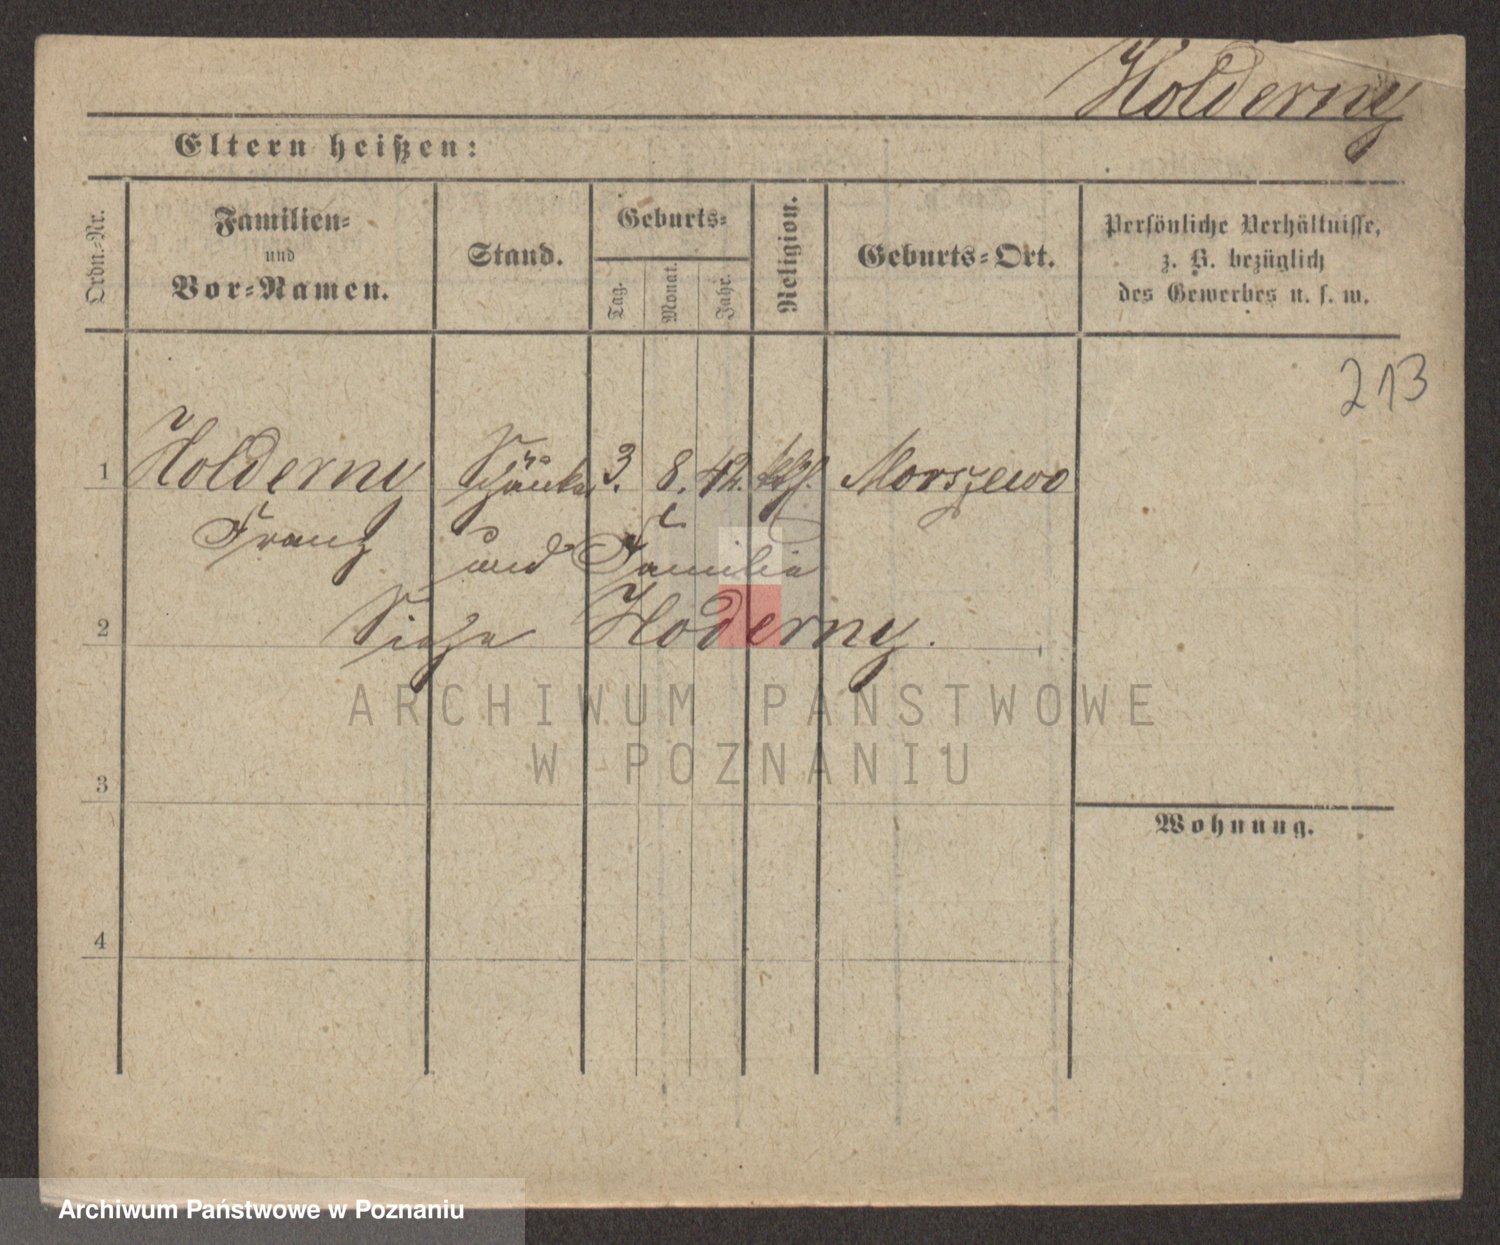 Holderny
Eltern heißen:
Ordn.-Nr.
Familien-
und
Vor-Namen.
Stand.
Geburts-
Tag.
Monat.
Jahr.
Religion.
Geburts-Ort.
Persönliche Verhältnisse,
z. B. bezüglich
des Gewerbes u. s. w.
213
1 Holderny Schänker 3. 8. 42. kth. Morszewo
Franz und Familie
2 Siehe Hoderny.
ARCHIWUM PAŃSTWOWE
W POZNANIU
3
Wohnung.
4
Archiwum Państwowe w Poznaniu